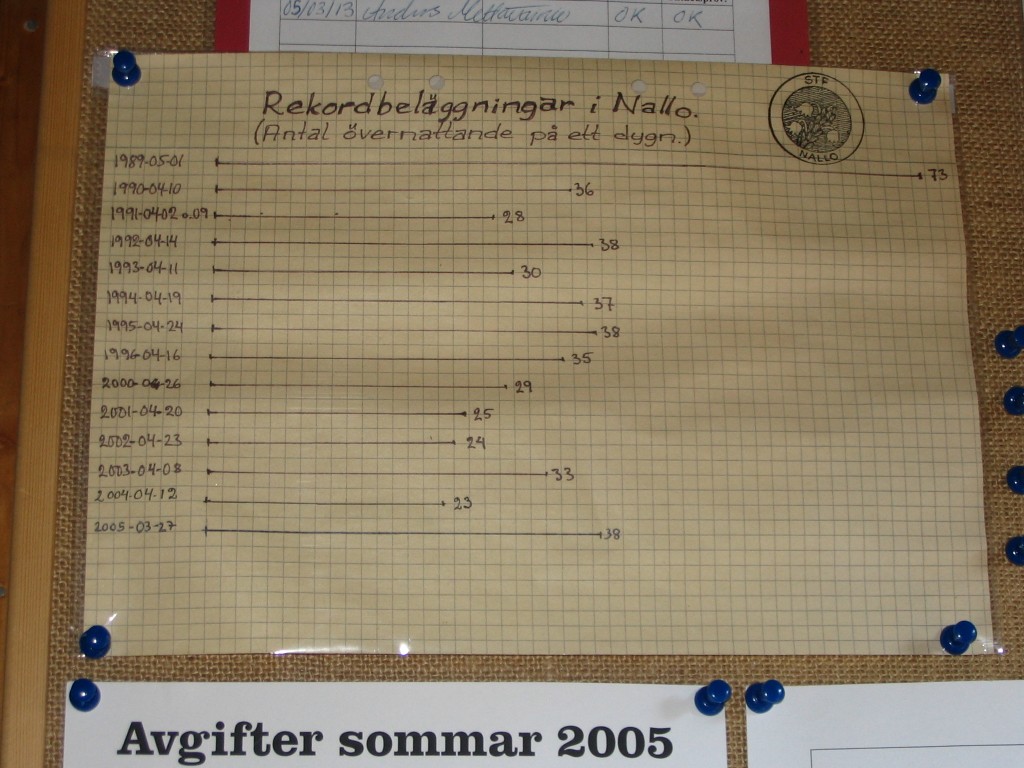 05/03/13 Anders OK OK
Rekordbeläggningar i Nallo.
(Antal övernattande på ett dygn.)
STF
NALLO
1989-05-01 73
1990-04-10 36
1991-0402 o.09 28
1992-04-14 38
1993-04-11 30
1994-04-19 37
1995-04-24 38
1996-04-16 35
2000-04-26 29
2001-04-20 25
2002-04-23 24
2003-04-08 33
2004-04-12 23
2005-03-27 38
Avgifter sommar 2005